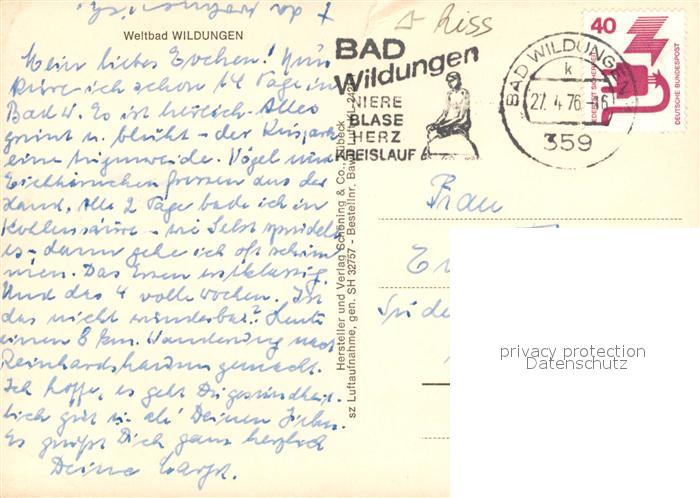 Weltbad WILDUNGEN
Mein liebes Evchen! Nun
kure ich schon 14 Tage in
Bad W. Es ist herrlich. Alles
grünt u. blüht - der Kurpark
eine Augenweide. Vögel und
Eichhörnchen fressen aus der
Hand. Alle 2 Tage bade ich in
Kohlensäure - wie Selbst sprudelt
es - dann gehe ich oft schwim
men. Das Essen erstklassig.
Und das 4 volle Wochen. Ist
das nicht wunderbar? Heute
einen 8 km. Wanderung nach
Reinhardshausen gemacht.
Ich hoffe, es geht Dir gesundheit-
lich gut u. all' Deinen Lieben.
Es grüßt Dich ganz herzlich
Deine
Hersteller und Verlag Schöning & Co., Lübeck
sz Luftaufnahme, gen. SH 32757 - Bestellnr. Bawi
Riss
BAD
Wildungen
NIERE
BLASE
HERZ
KREISLAUF
BAD WILDUNGEN
k
27.4.76-16
359
40
JEDERZEIT SICHERHEIT
DEUTSCHE BUNDESPOST
Frau
privacy protection
Datenschutz